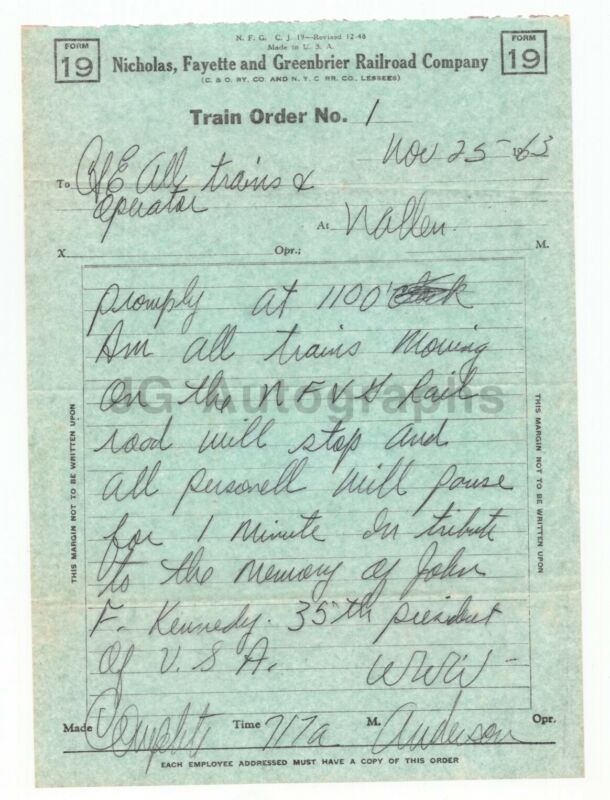 N. F. G. C. J. 19—Revised 12-48
Made in U. S. A.
FORM
19
FORM
19
Nicholas, Fayette and Greenbrier Railroad Company
(C. & O. RY. CO. AND N. Y. C RR. CO., LESSEES)
Train Order No. 1
Nov 25 1963
To C&E All trains &
operator
At Nallen
X Opr.; M.
promply at 1100
Am all trains moving
on the N F & G Rail
road will stop and
all personell will pause
for 1 minute in tribute
to the memory of John
F. Kennedy. 35th president
of U. S. A. WWW
Made Complete Time 717a M. Anderson Opr.
EACH EMPLOYEE ADDRESSED MUST HAVE A COPY OF THIS ORDER
THIS MARGIN NOT TO BE WRITTEN UPON
THIS MARGIN NOT TO BE WRITTEN UPON
JG Autographs